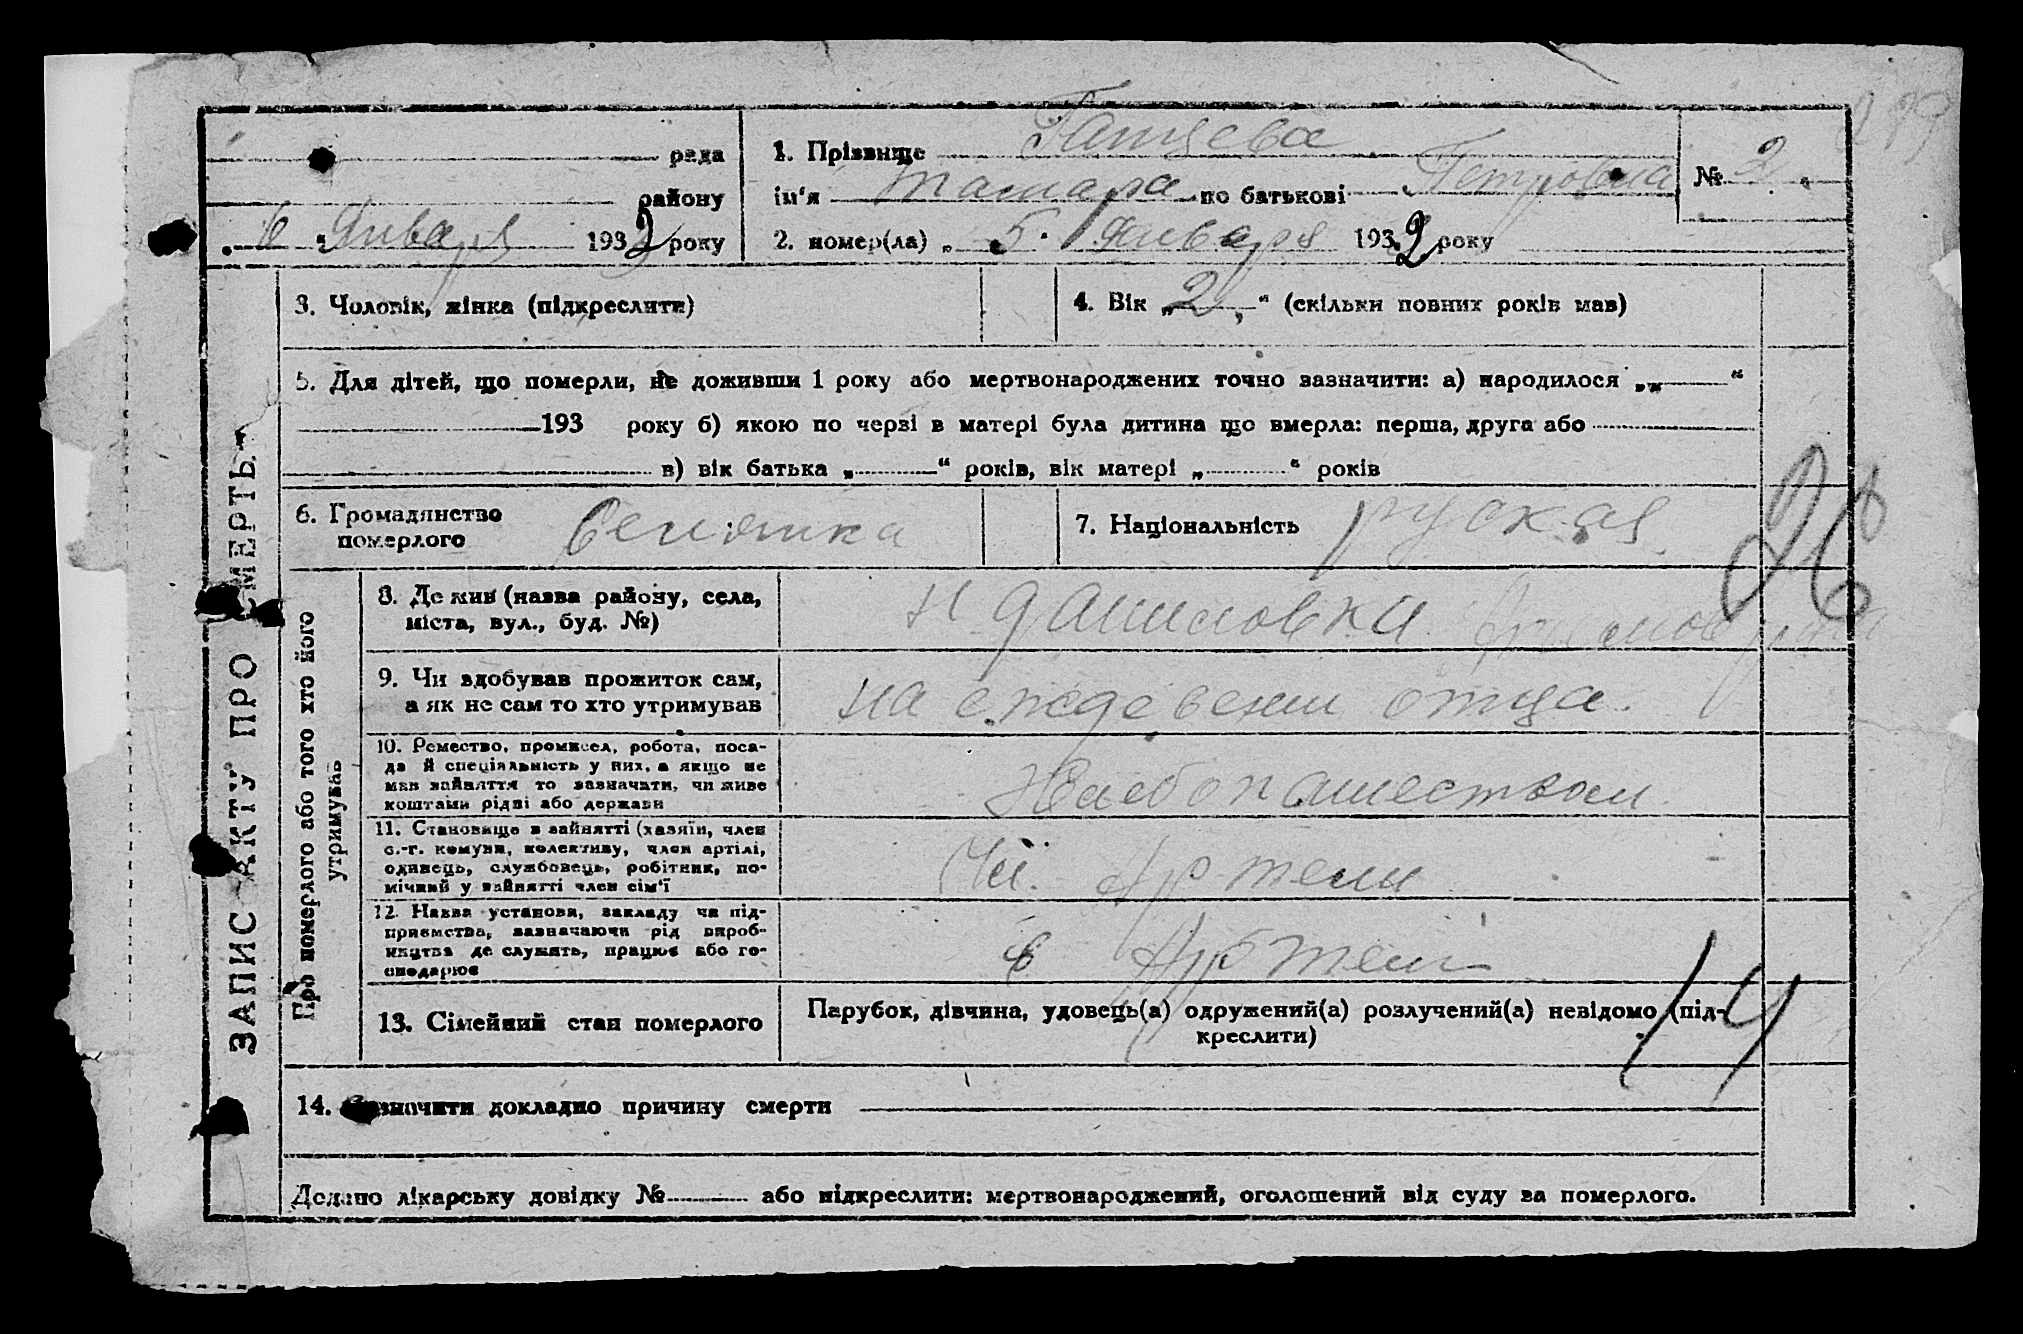 рада
району
6 Января 1932 року
1. Прізвище Гатцева
ім'я Тамара по батькові Петровна
№ 2
2. номер(ла) „ 5 Января 1932 року
3. Чоловік, жінка (підкреслити)
4. Вік „ 2 “ (скільки повних років мав)
5. Для дітей, що померли, не доживши 1 року або мертвонароджених точно зазначити: а) народилося „ “
193 року б) якою по черзі в матері була дитина що вмерла: перша, друга або
в) вік батька „ “ років, вік матері „ “ років
6. Громадянство
померлого
7. Національність руская
ЗАПИС АКТУ ПРО СМЕРТЬ
Про померлого або того хто його
утримував
8. Де жив (назва району, села,
міста, вул., буд. №)
Н Даниловка
9. Чи вдобував прожиток сам,
а як не сам то хто утримував
на еждевении отца.
10. Ремество, промисел, робота, поса-
да й спеціяльність у них, а якщо не
мав зайняття то зазначити, чи живе
коштами рідні або держави
Хлебопашеством
11. Становище в зайнятті (хазяїн, член
с.-г. комуни, колективу, член артілі,
одинець, службовець, робітник, по-
мічний у зайнятті член сім'ї
Чл. Артели
12. Назва установи, закладу чи під-
приємства, зазначаючи рід вироб-
ництва де служить, працює або го-
сподарює
в Артели
13. Сімейний стан померлого
Парубок, дівчина, удовець(а) одружений(а) розлучений(а) невідомо (під-
креслити)
26
14
14. Зазначити докладно причину смерти
Додано лікарську довідку № або підкреслити: мертвонароджений, оголошений від суду за померлого.